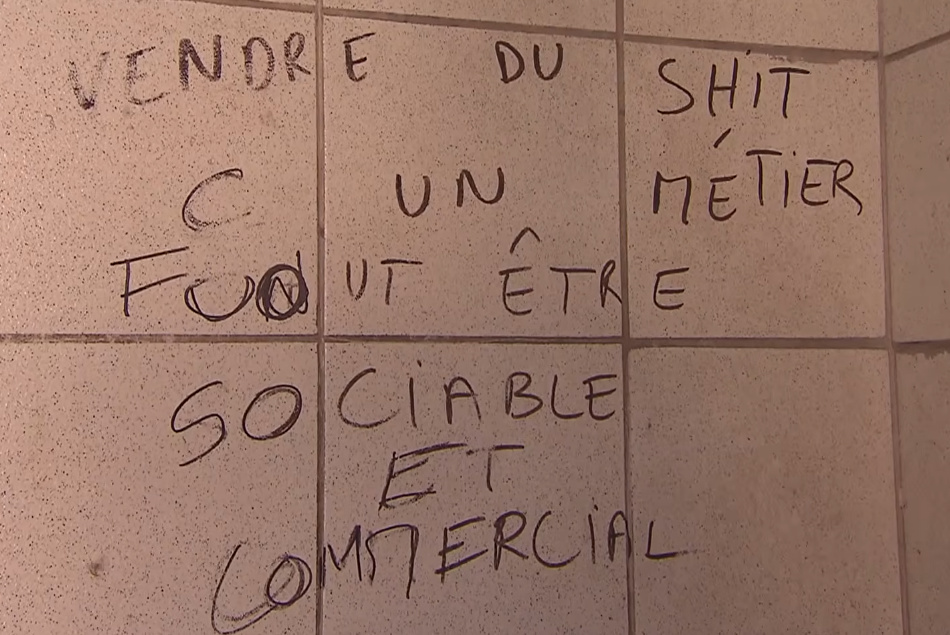 VENDRE DU SHiT
C UN MÉTiER
FUNUT ÊTRE
SOCiABLE
ET
COMMERCiAL